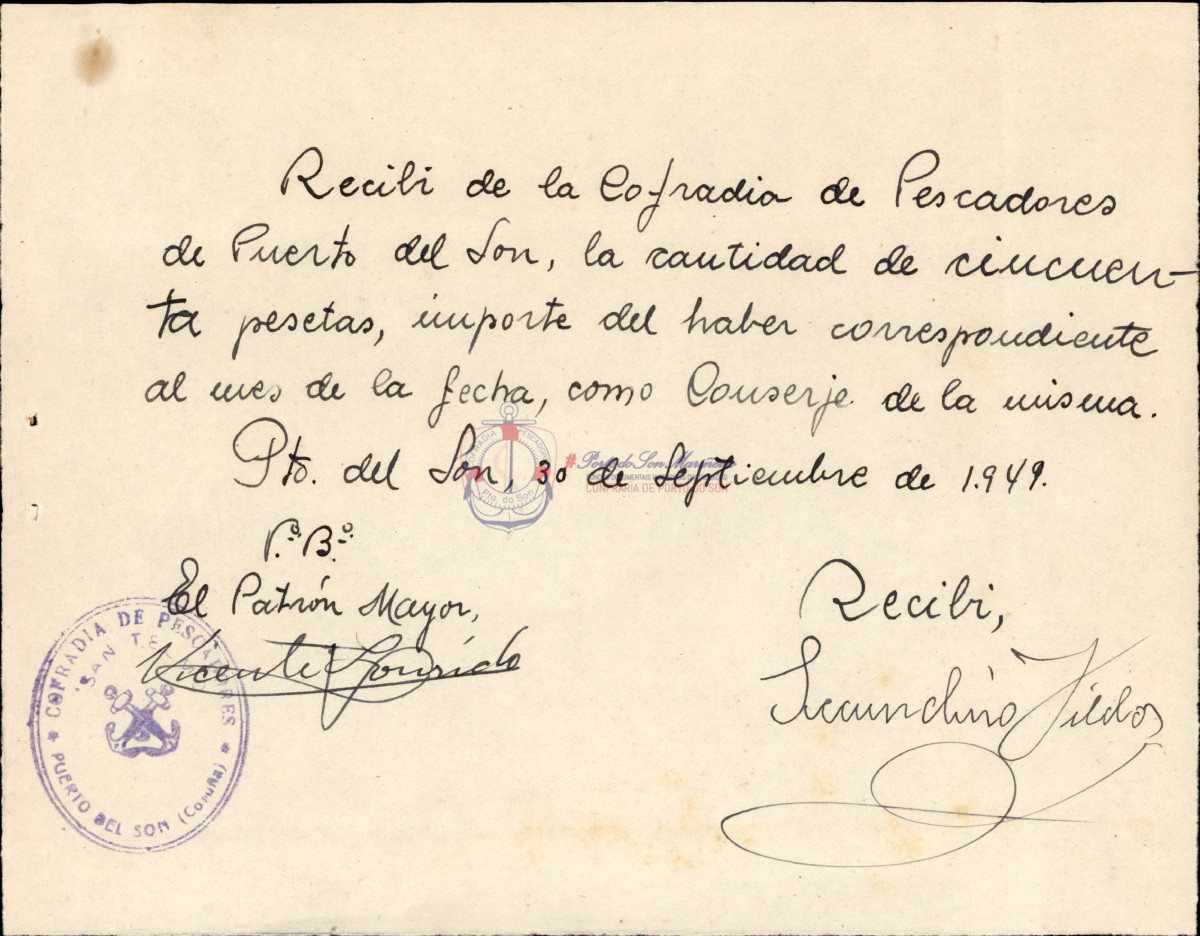 Recibi de la Cofradia de Pescadores
de Puerto del Son, la cantidad de cincuen-
ta pesetas, importe del haber correspondiente
al mes de la fecha, como Conserje de la misma.
Pto. del Son, 30 de Septiembre de 1.949.
V.º B.º
El Patrón Mayor,
Vicente
Recibi,
Secundino
COFRADIA DE PESCADORES
"SAN TE
PUERTO DEL SON (Coruña)
COFRADIA PESCADORES
Pto. do Son
#Porto do Son Mariñeiro
CONFRARÍA DE PORTO DO SON